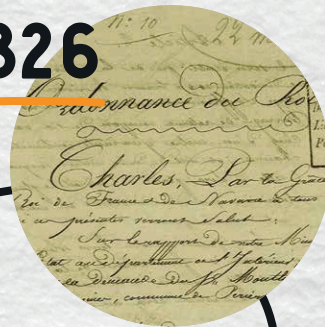 326
N° 10
Ordonnance du Ro
Charles, Par la Grâce
Roi de France & de Navarre à tous
ceux présentes verront Salut.
Sur le rapport de notre Min
État au département de l'Intérieur
la demande du Sr
commune de